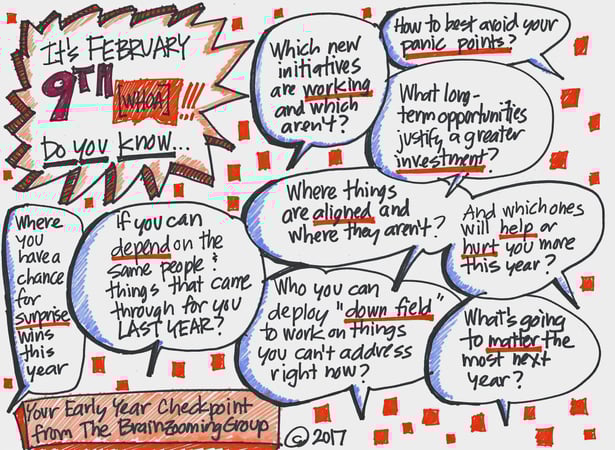 It's FEBRUARY
9TH [WHOA]!!!
Do you know...
Which new
initiatives
are working
and which
aren't?
How to best avoid your
panic points?
What long-
term opportunities
justify a greater
investment?
Where things
are aligned and
where they aren't?
And which ones
will help or
hurt you more
this year?
Where
you
have a
chance
for
surprise
wins
this
year
If you can
depend on the
same people &
things that came
through for you
LAST YEAR?
Who you can
deploy "down field"
to work on things
you can't address
right now?
What's going
to matter the
most next
year?
Your Early Year Checkpoint
from The Brainzooming Group
© 2017